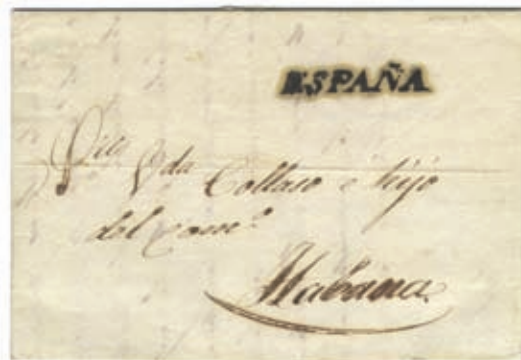 ESPAÑA
Vda Collaso é hijo
del comº
Habana